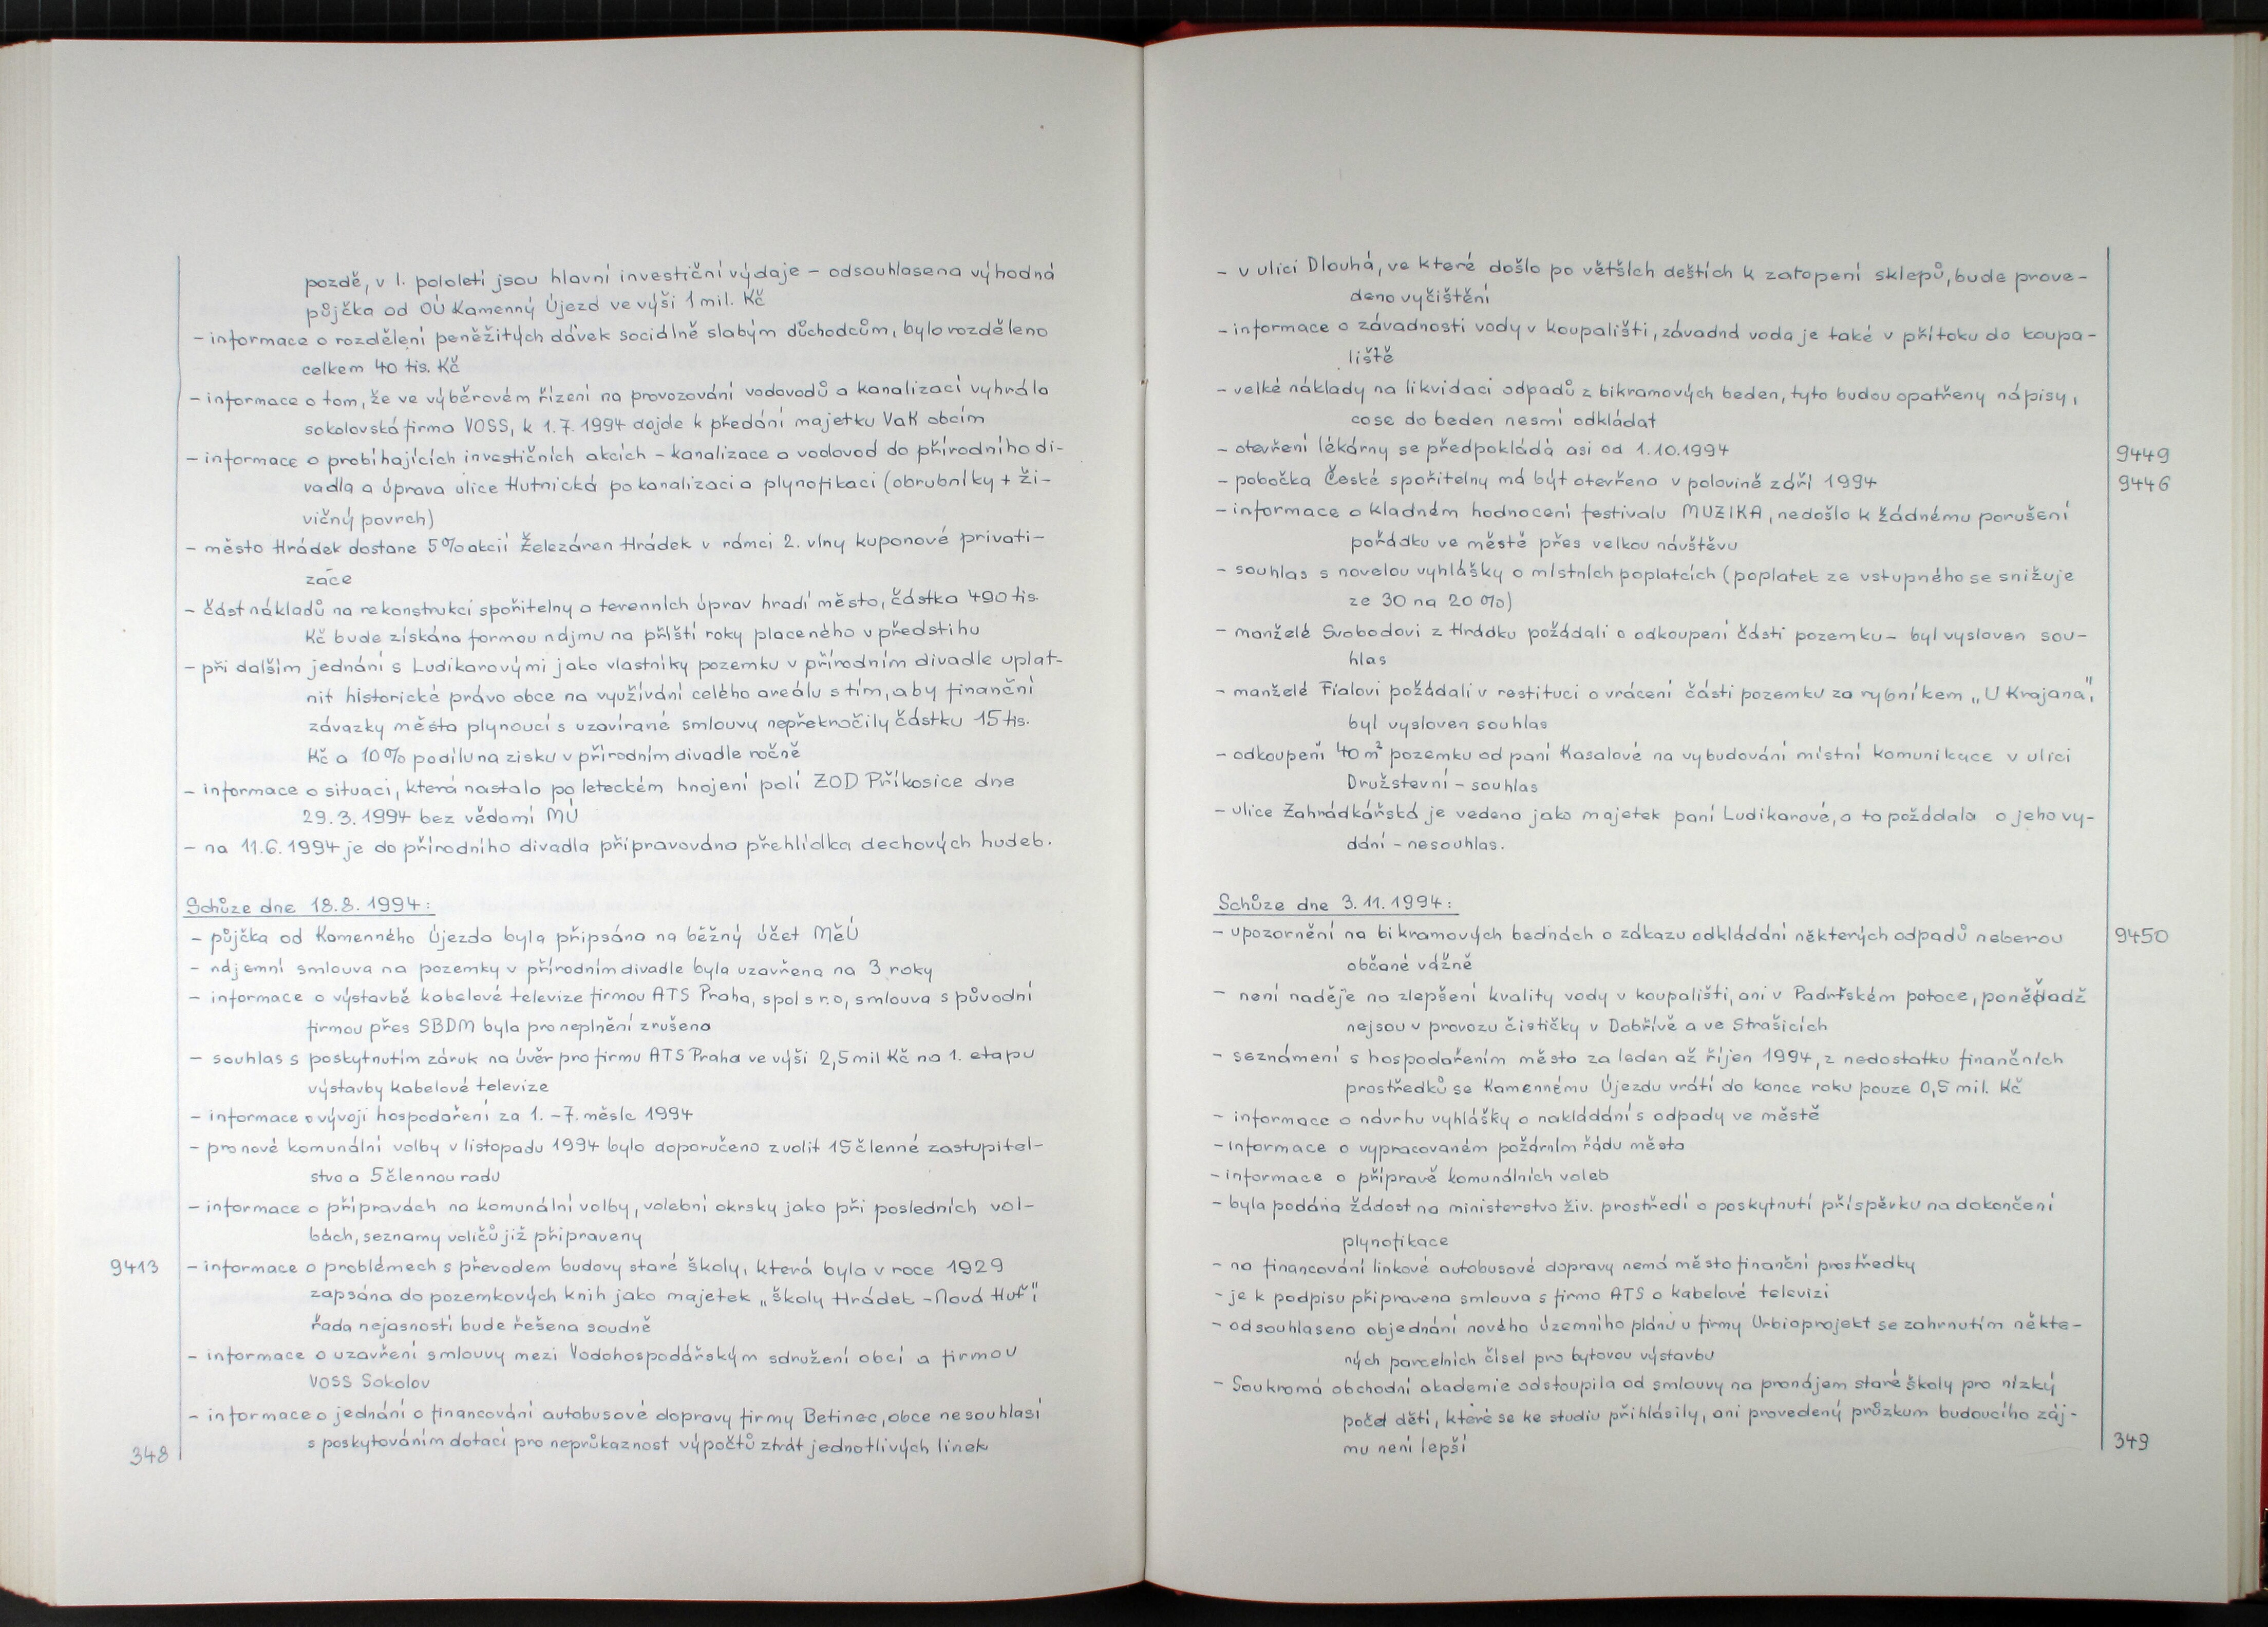 pozdě, v I. pololetí jsou hlavní investiční výdaje – odsouhlasena výhodná
půjčka od OÚ Kamenný Újezd ve výši 1 mil. Kč
– informace o rozdělení peněžitých dávek sociálně slabým důchodcům, bylo rozděleno
celkem 40 tis. Kč
– informace o tom, že ve výběrovém řízení na provozování vodovodů a kanalizací vyhrála
sokolovská firma VOSS, k 1.7.1994 dojde k předání majetku VaK obcím
– informace o probíhajících investičních akcích – kanalizace a vodovod do přírodního di-
vadla a úprava ulice Hutnická po kanalizaci a plynofikaci (obrubníky + ži-
vičný povrch)
– město Hrádek dostane 5% akcií Železáren Hrádek v rámci 2. vlny kuponové privati-
zace
– část nákladů na rekonstrukci spořitelny a terenních úprav hradí město, částka 490 tis.
Kč bude získána formou nájmu na příští roky placeného v předstihu
– při dalším jednání s Ludikarovými jako vlastníky pozemku v přírodním divadle uplat-
nit historické právo obce na využívání celého areálu s tím, aby finanční
závazky města plynoucí s uzavírané smlouvy nepřekročily částku 15 tis.
Kč a 10% podílu na zisku v přírodním divadle ročně
– informace o situaci, která nastala po leteckém hnojení polí ZOD Příkosice dne
29.3.1994 bez vědomí MÚ
– na 11.6.1994 je do přírodního divadla připravována přehlídka dechových hudeb.
Schůze dne 18.8.1994:
– půjčka od Kamenného Újezda byla připsána na běžný účet MěÚ
– nájemní smlouva na pozemky v přírodním divadle byla uzavřena na 3 roky
– informace o výstavbě kabelové televize firmou ATS Praha, spol s r.o, smlouva s původní
firmou přes SBDM byla pro neplnění zrušena
– souhlas s poskytnutím záruk na úvěr pro firmu ATS Praha ve výši 2,5 mil Kč na 1. etapu
výstavby kabelové televize
– informace o vývoji hospodaření za 1. – 7. měsíc 1994
– pro nové komunální volby v listopadu 1994 bylo doporučeno zvolit 15 členné zastupitel-
stvo a 5 člennou radu
– informace o přípravách na komunální volby, volební okrsky jako při posledních vol-
bách, seznamy voličů již připraveny
9413 – informace o problémech s převodem budovy staré školy, která byla v roce 1929
zapsána do pozemkových knih jako majetek „školy Hrádek – Nová Huť",
řada nejasností bude řešena soudně
– informace o uzavření smlouvy mezi Vodohospodářským sdružení obcí a firmou
VOSS Sokolov
– informace o jednání o financování autobusové dopravy firmy Betinec, obce nesouhlasí
s poskytováním dotací pro neprůkaznost výpočtů ztrát jednotlivých linek
348
– v ulici Dlouhá, ve které došlo po větších deštích k zatopení sklepů, bude prove-
deno vyčištění
– informace o závadnosti vody v koupališti, závadná voda je také v přítoku do koupa-
liště
– velké náklady na likvidaci odpadů z bikramových beden, tyto budou opatřeny nápisy,
co se do beden nesmí odkládat
– otevření lékárny se předpokládá asi od 1.10.1994 9449
– pobočka České spořitelny má být otevřena v polovině září 1994 9446
– informace o kladném hodnocení festivalu MUZIKA, nedošlo k žádnému porušení
pořádku ve městě přes velkou návštěvu
– souhlas s novelou vyhlášky o místních poplatcích (poplatek ze vstupného se snižuje
ze 30 na 20 %)
– manželé Svobodovi z Hrádku požádali o odkoupení části pozemku – byl vysloven sou-
hlas
– manželé Fialovi požádali v restituci o vrácení části pozemku za rybníkem „U Krajana",
byl vysloven souhlas
– odkoupení 40 m² pozemku od paní Kasalové na vybudování místní komunikace v ulici
Družstevní – souhlas
– ulice Zahrádkářská je vedena jako majetek paní Ludikarové, a ta požádala o jeho vy-
dání – nesouhlas.
Schůze dne 3.11.1994:
– upozornění na bikramových bednách o zákazu odkládání některých odpadů neberou 9450
občané vážně
– není naděje na zlepšení kvality vody v koupališti, ani v Padrťském potoce, poněvadž
nejsou v provozu čističky v Dobřívě a ve Strašicích
– seznámení s hospodařením města za leden až říjen 1994, z nedostatku finančních
prostředků se Kamennému Újezdu vrátí do konce roku pouze 0,5 mil. Kč
– informace o návrhu vyhlášky o nakládání s odpady ve městě
– informace o vypracovaném požárním řádu města
– informace o přípravě komunálních voleb
– byla podána žádost na ministerstvo živ. prostředí o poskytnutí příspěvku na dokončení
plynofikace
– na financování linkové autobusové dopravy nemá město finanční prostředky
– je k podpisu připravena smlouva s firmo ATS o kabelové televizi
– odsouhlaseno objednání nového územního plánu u firmy Urbioprojekt se zahrnutím někte-
rých parcelních čísel pro bytovou výstavbu
– Soukromá obchodní akademie odstoupila od smlouvy na pronájem staré školy pro nízký
počet dětí, které se ke studiu přihlásily, ani provedený průzkum budoucího záj-
mu není lepší
349